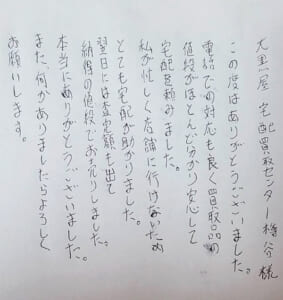 大黒屋 宅配買取センター 樽谷様
この度はありがとうございました。
電話での対応も良く買取品の
値段がほとんど分かり安心して
宅配を頼みました。
私が忙しく店舗に行けないため
とても宅配が助かりました。
翌日には査定額も出て
納得の値段でお売りしました。
本当にありがとうございました。
また、何かありましたらよろしく
お願いします。